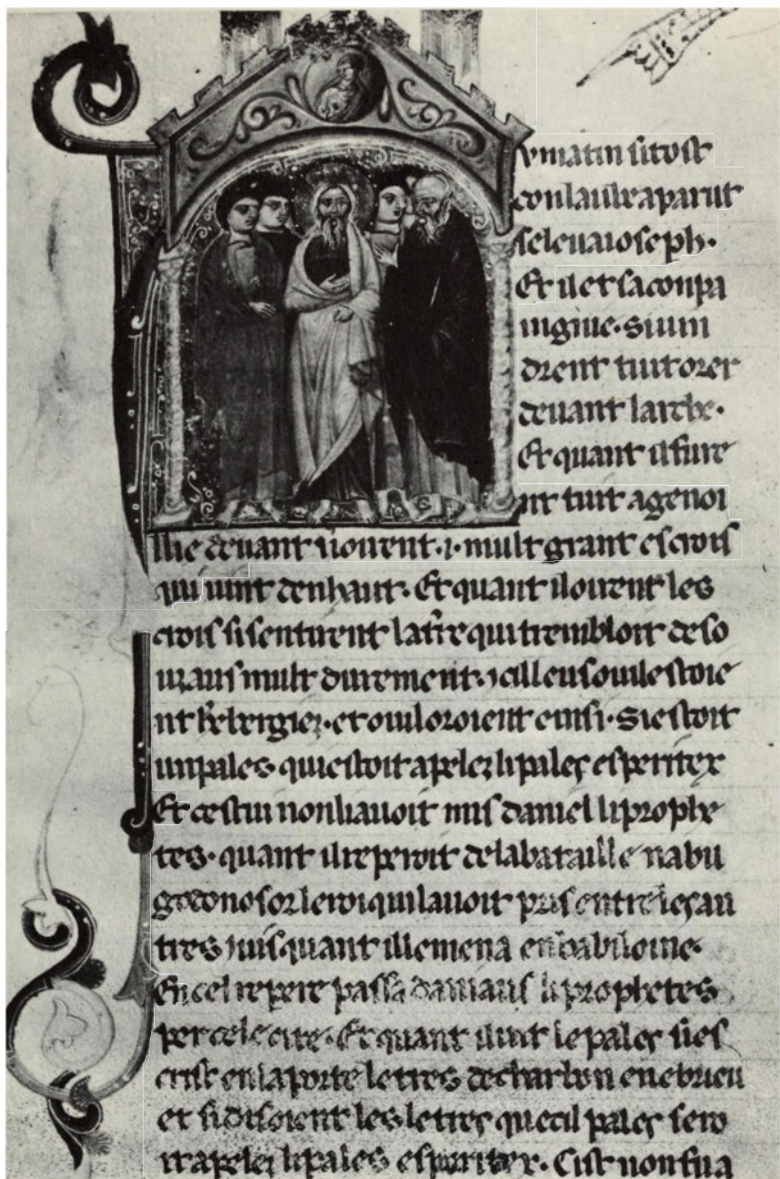 v matin si tost
con laube aparut
se leva ioseph.
Et il et sa conpa
ingnie. si vin
drent tuit orer
devant larche.
Et quant il fure
nt tuit agenoi
llie devant si oirent .i. mult grant escrois
qui vint denhaut. Et quant il oirent les
crois si sentirent la tr̄e qui trembloit deso
uz aus mult durement. icil leu ou il estoie
nt h̄bergiez. et ou il oroient einsi. Si estoit
un pales. qui estoit apelez li palez esperitex
Et cestui non li avoit mis daniel li prophe
tes. quant il reperoit de la bataille nabu
godonosor le roi qui lavoit pris entre les au
tres iuis. quant il lemena en babiloine.
En cel repere passa daniaus li prophetes
per cele cite. Et quant il vit le palez si es
crist en la porte letres de charbon en ebrieu
et si disoient les letres que cil palez sero
it apelez li pales esperitex. Cist non fu a